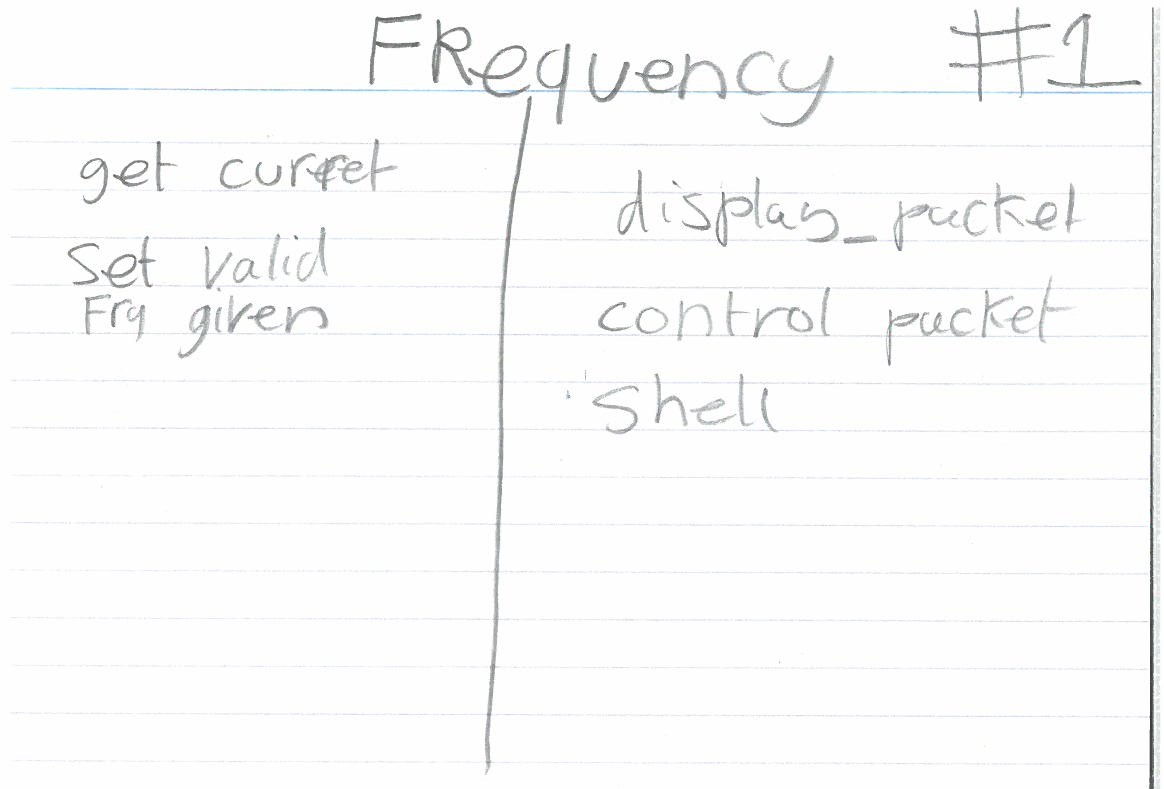 FRequency #1
get curret
Set valid
Frq given
display_packet
control packet
Shell